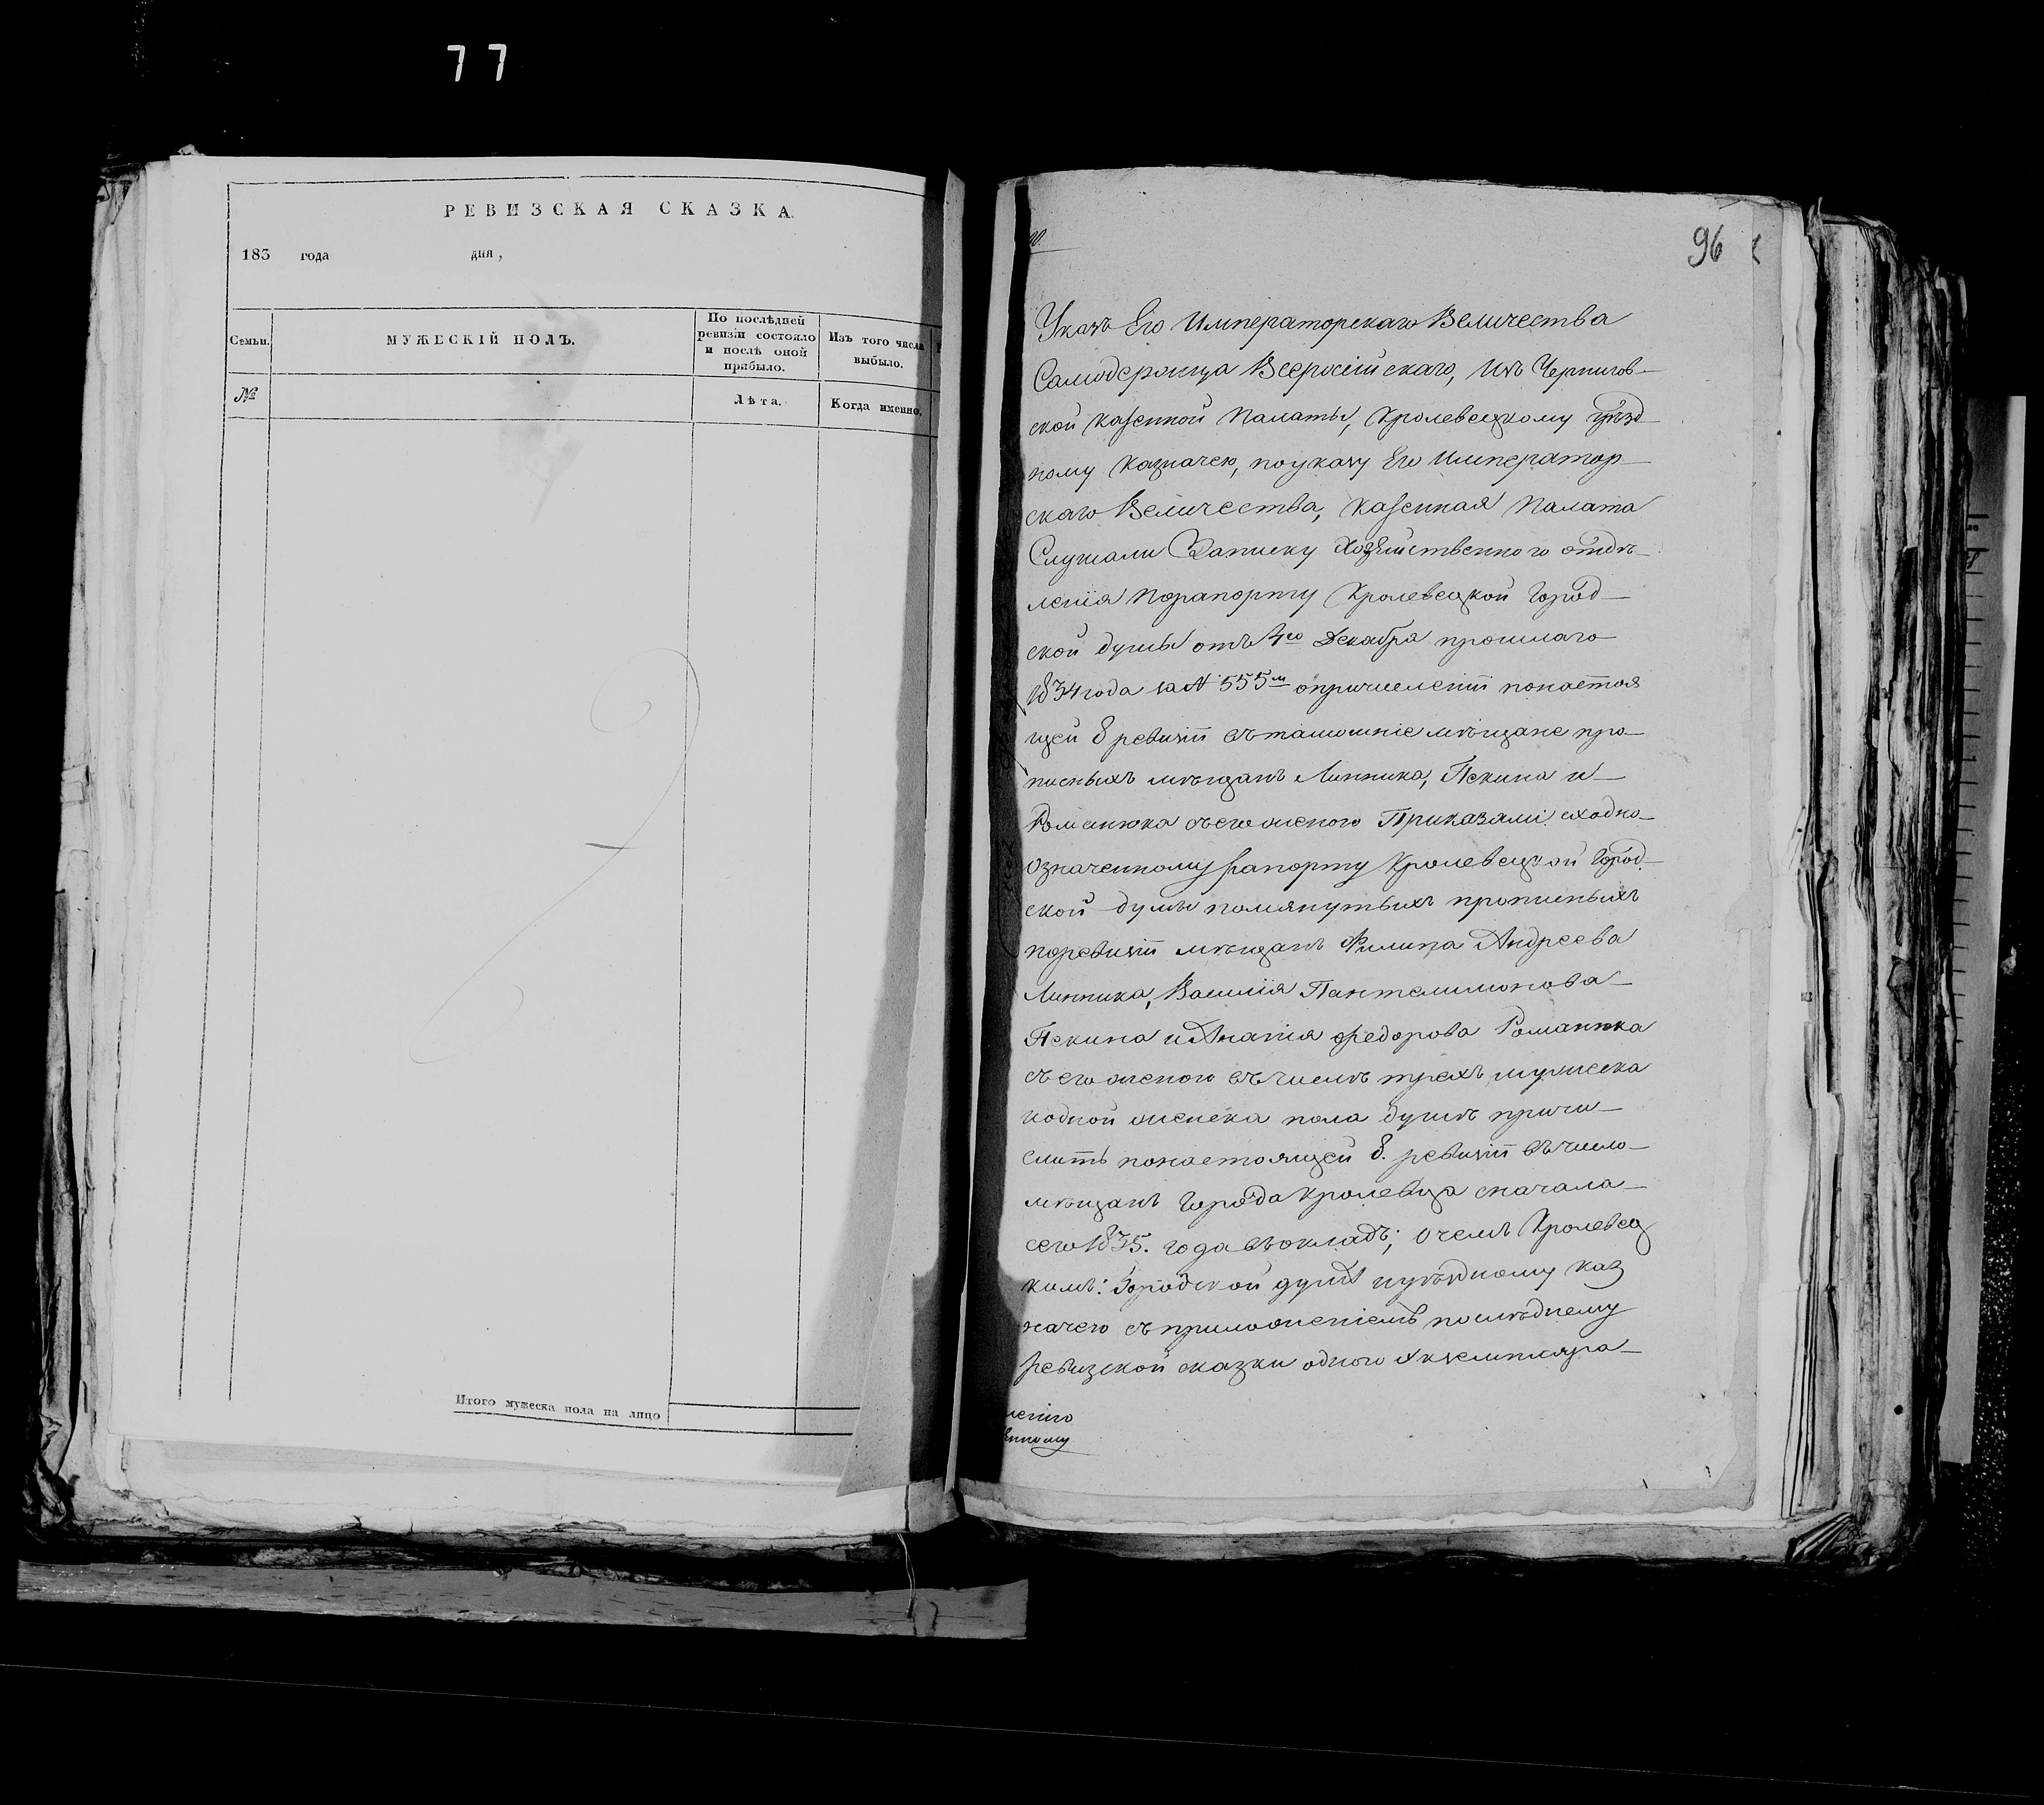 77
РЕВИЗСКАЯ СКАЗКА.
183 года дня,
Семьи.
МУЖЕСКІЙ ПОЛЪ.
По послѣдней
ревизіи состояло
и послѣ оной
прибыло.
Изъ того числа
выбыло.
№
Лѣта.
Когда именно.
Итого мужеска пола на лицо
96
Указъ Его Императорскаго Величества
Самодержца Всеросійскаго, Изъ Чернигов-
ской казенной Палаты, Кролевецкому уѣзд-
ному Казначею, по указу Его Император-
скаго Величества, Казенная Палата
Слушали Записку Хозяйственного отдѣ-
ленія порапорту Кролевецкой Город-
ской думы отъ 4го Декабря прошлаго
1834 года за № 555м опричисленіи понастоя
щей 8 ревизіи въ тамошніе мѣщане про-
писныхъ мѣщанъ Линника, Пекина и
Романюка съ его женою Приказали: сходно-
означенному рапорту Кролевецкой Город-
ской думы помянутыхъ прописныхъ
поревизіи мѣщанъ Филипа Андреева
Линника, Василія Пантелимонова-
Пекина и Федорова Романюка
съ его женою въ числѣ трехъ мужеска
иодной женска пола душъ причи-
слить понастоящей 8. ревизіи въ число-
мѣщанъ Города Кролевца сначала-
сего 1835. года въ окладъ; о чемъ Кролевец
кимъ: Городской думѣ иуѣздному каз
начею съ приложеніемъ послѣднему
ревизской сказки одного экземпляра-
ленію